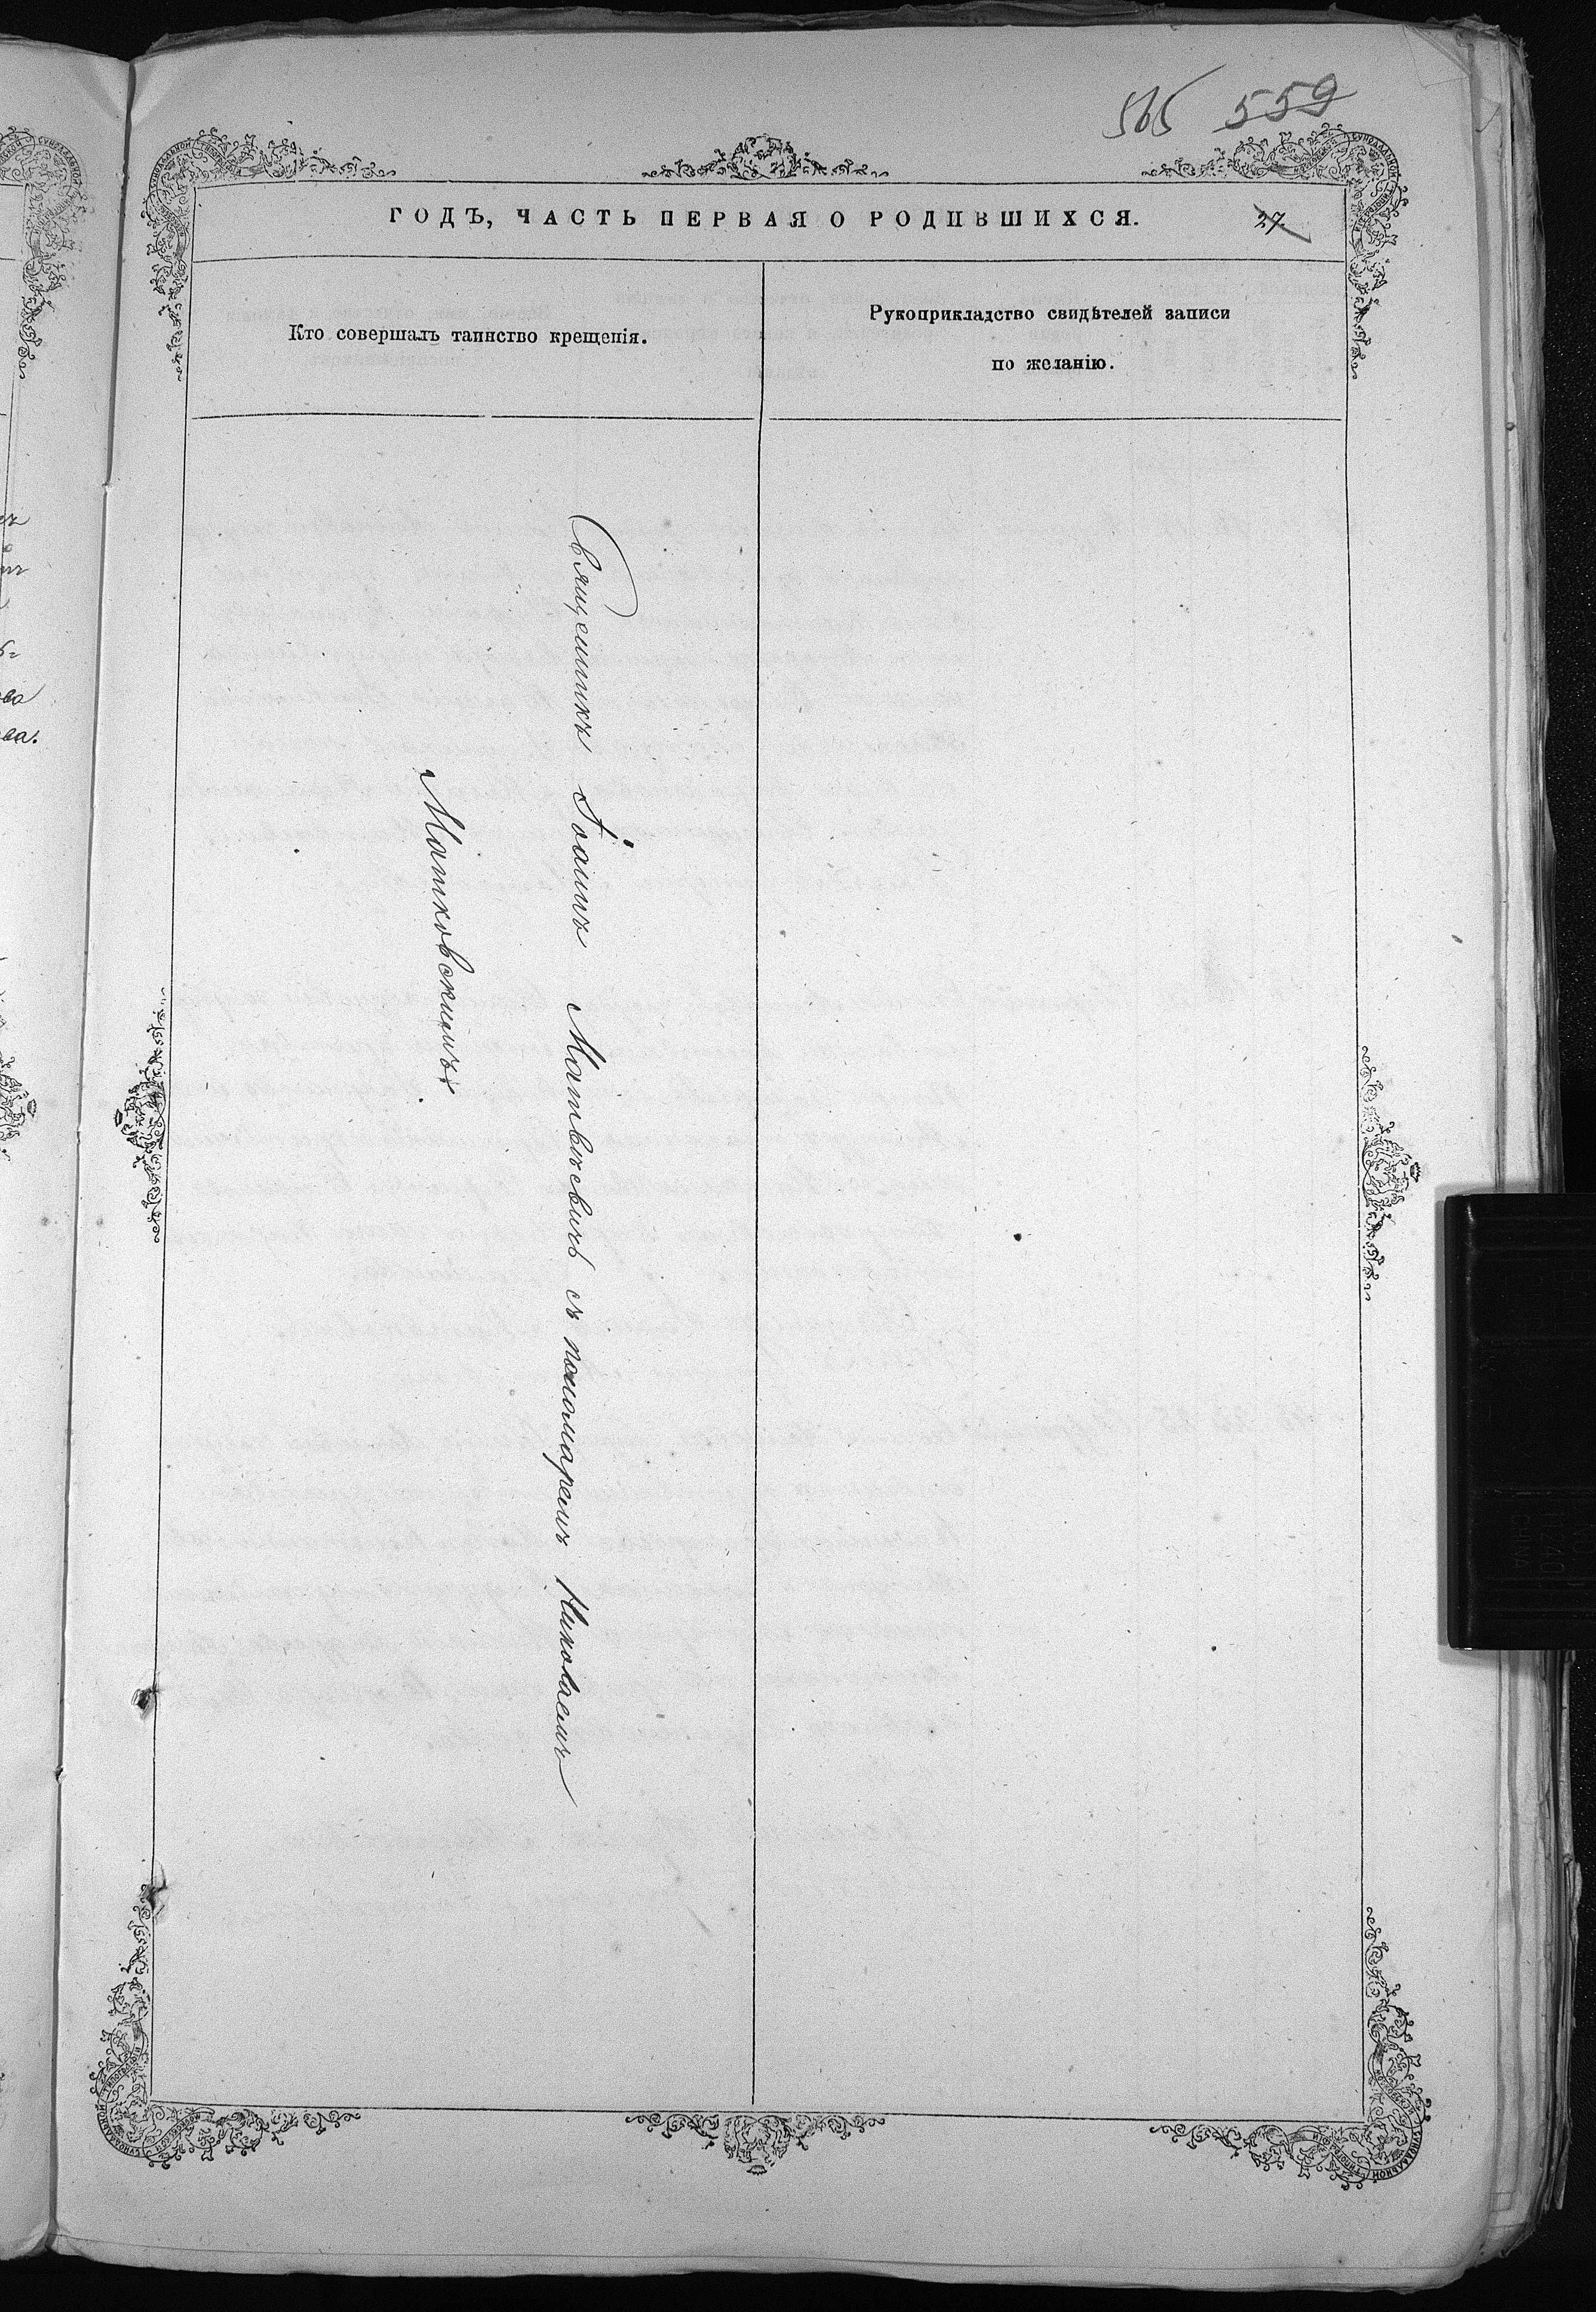 565 559
ГОДЪ, ЧАСТЬ ПЕРВАЯ О РОДИВШИХСЯ. 27
Кто совершалъ таинство крещенія.
Рукоприкладство свидѣтелей записи
по желанію.
Священникъ Іоаннъ Матвѣевичъ съ пономаремъ Николаемъ
Матковскимъ.